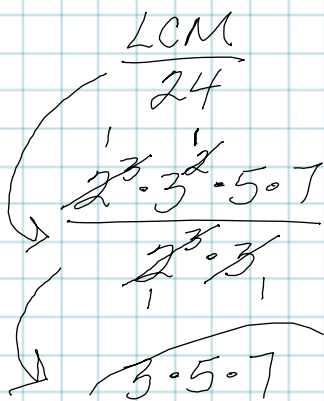 LCM
24
1 1
2³·3²·5·7
2³·3
1 1
3·5·7